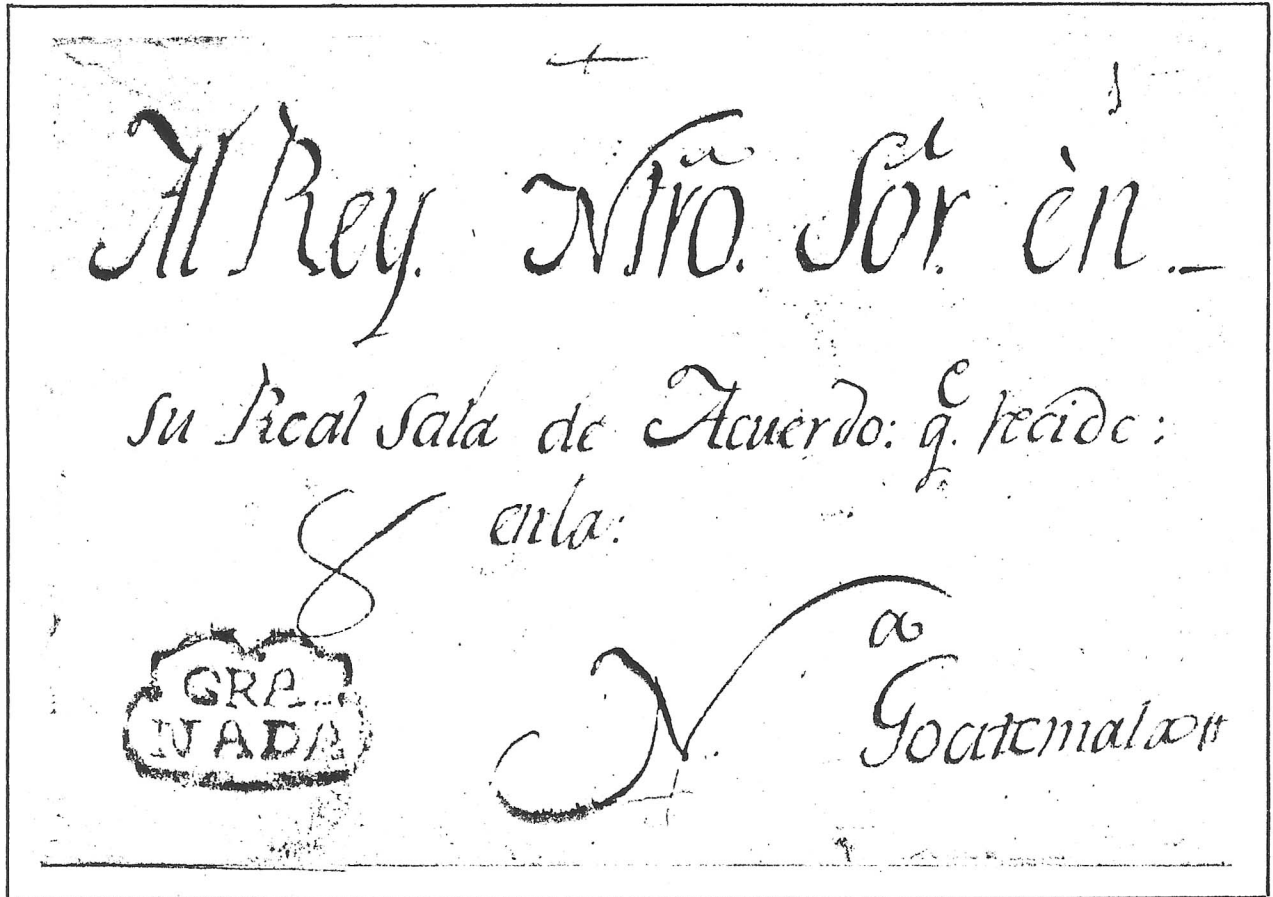 Al Rey. Ntrõ. Sor. èn
su Real Sala de Acuerdo: qe. recide:
enla:
8
GRA
NADA
N. a Goatemala